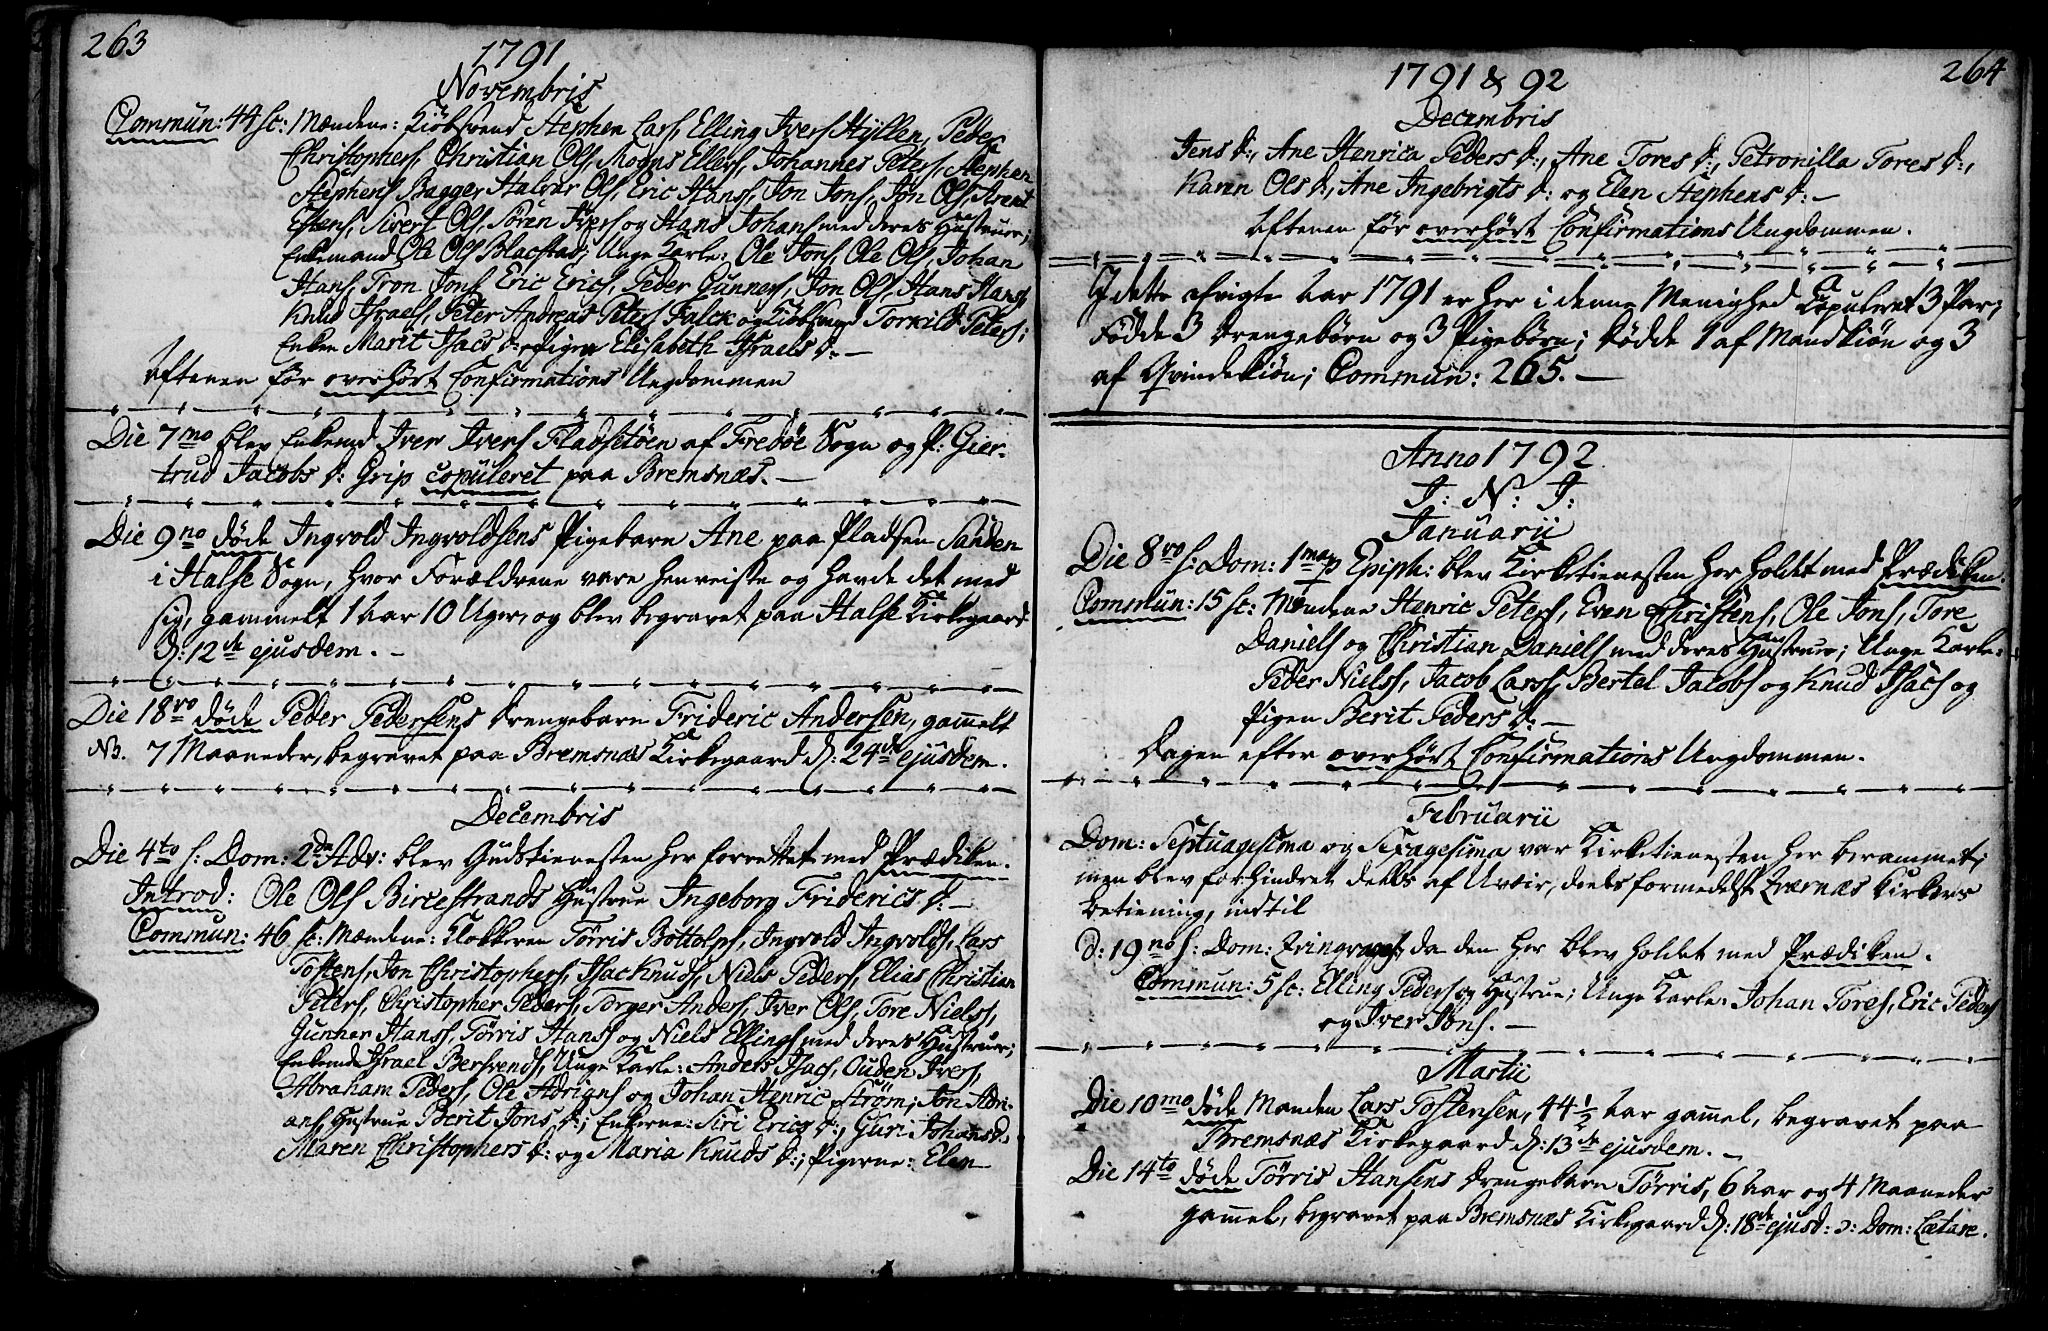 263
1791
Novembris
Commun: 44 sc: Mændene: Kiøbsvend Stephen Lars, Elling Ivers Hÿllen, Peder
Christophers, Christian Ols, Mogns Ellers, Johannes Peters, Stephen
Stephens Bagger, Halvar Ols, Eric Hans, Jon Jons, Jon Ols, Arent
Estens, Sivert Ols, Søren Ivers og Hans Johans med deres Hustruer;
Enkemand Ole Ols Blacstad; Unge Karle: Ole Jons, Ole Ols, Johan
Hans, Tron Jons, Eric Erics, Peder Gunners, Jon Ols, Hans Hans,
Knud Israels, Peter Andreas Peters Falck og Kiøbsvend Torkild Peters;
Enken Marit Isacs d: Pigen Elisabeth Israels d: —
Aftenen før overhørt Confirmations Ungdommen
Die 7mo blev Enkemd Iver Ivers Fladsetøen af Fredøe Sogn og P: Gier-
trud Jacobs d: Grip copuleret paa Bremsnæs. —
Die 9no døde Ingvold Ingvoldsens Pigebarn Ane paa Pladsen Sanden
i Halse Sogn, hvor Forældrene vare henreiste og havde det med
sig, gammelt 1 Aar 10 Uger, og blev begravet paa Halse Kirkegaard
d: 12te ejusdem. —
Die 18vo døde Peder Pedersens Drengebarn Frideric Andersen, gammelt
NB. 7 Maaneder, begravet paa Bremsnæs Kirkegaard d: 24de ejusdem.
Decembris
Die 4to s: Dom: 2da Adv: blev Gudstienesten her forrettet med Prædiken.
Introd: Ole Ols Bircestrands Hustrue Ingeborg Friderics d: —
Commun: 46 sc: Mændene: Klokkeren Tørris Bottolps, Ingvold Ingvolds, Lars
Tostens, Jon Christophers, Isac Knuds, Niels Peders, Elias Christian
Peters, Christopher Peders, Torger Anders, Iver Ols, Tore Niels,
Gunner Hans, Tørris Hans og Niels Ellings med deres Hustruer;
Enkemd Israel Bersvends, Unge Karle: Anders Isacs, Ouden Ivers,
Abraham Peders, Ole Adrians og Johan Henric Strøm; Jon Adri-
ans Hustrue Berit Jons d:; Enkerne: Siri Erics d:, Guri Johans d:,
Maren Christophers d: og Maria Knuds d:; Pigerne: Elen
264
1791 & 92
Decembris
Jens d:, Ane Henrica Peders d:, Ane Tores d:, Petronilla Tores d:,
Karen Ols d:, Ane Ingebrigts d: og Elen Stephens d: —
Aftenen før overhørt Confirmations Ungdommen.
I dette afvigte Aar 1791 er her i denne Menighed Copuleret 3 Par;
Fødde 3 Drengebørn og 3 Pigebørn; Dødde 1 af Mandkiøn og 3
af Qvindekiøn; Commun: 265. —
Anno 1792
I: N: J:
Januarii
Die 8vo s: Dom: 1ma p Epiph: blev Kirketienesten her holdet med Prædiken.
Commun: 15 sc: Mændene Henric Peters, Even Christens, Ole Jons, Tore
Daniels og Christian Daniels med deres Hustruer; Unge Karle:
Peder Niels, Jacob Lars, Bertel Jacobs og Knud Isacs og
Pigen Berit Peders d: —
Dagen efter overhørt Confirmations Ungdommen.
Februarii
Dom: Septuagesima og Sexagesima var Kirketienesten her berammet;
men blev forhindret deels af Uveir, deels formedelst Qværnæs Kirkes
betiening, indtil
d: 19no s: Dom: Qvinqvages: da den her blev holdet med Prædiken.
Commun: 5 sc: Elling Peders og Hustrue; Unge Karle: Johan Tores, Eric Peders
og Iver Jons. —
Martii
Die 10mo døde Manden Lars Tostensen, 44 1/2 Aar gammel, begravet paa
Bremsnæs Kirkegaard d: 13de ejusdem. —
Die 14to døde Tørris Hansens Drengebarn Tørris, 6 Aar og 4 Maaneder
gammel, begravet paa Bremsnæs Kirkegaard d: 18de ejusd: ɔ: Dom: Lætare.